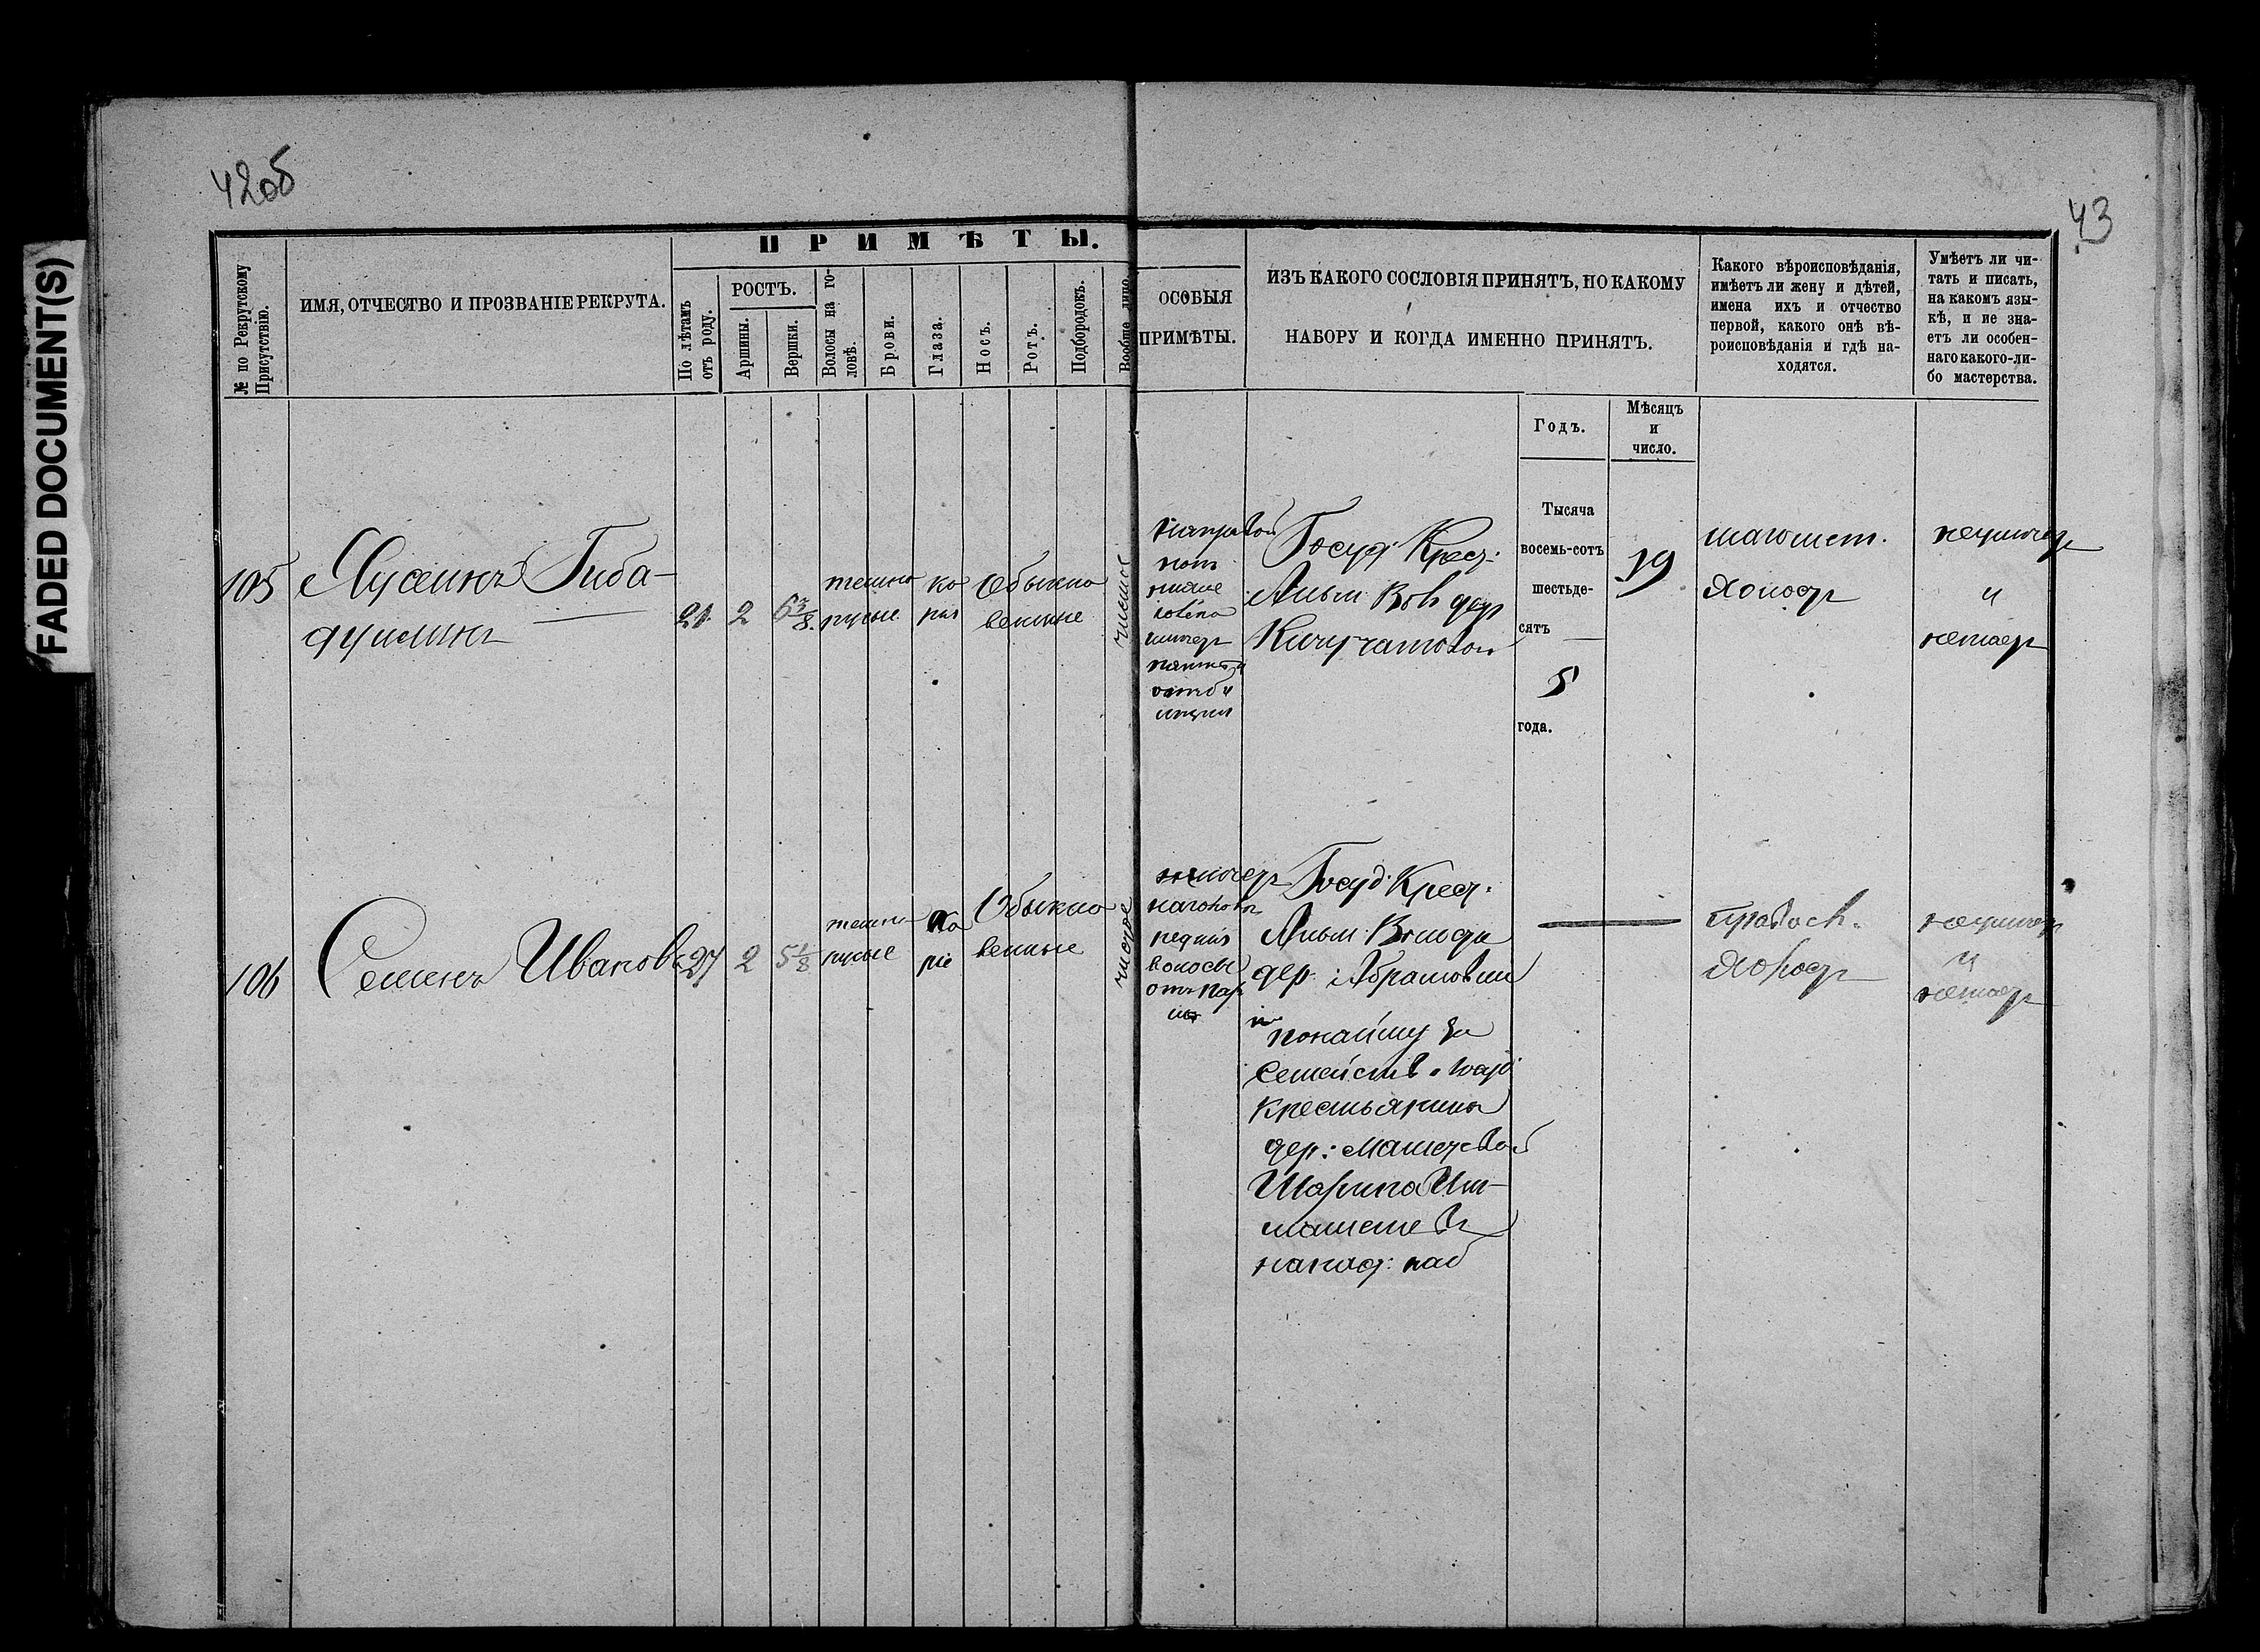 FADED DOCUMENT(S)
42об
43
ПРИМѢТЫ.
№ по Рекрутскому
Присутствію.
ИМЯ, ОТЧЕСТВО И ПРОЗВАНІЕ РЕКРУТА.
По лѣтамъ
отъ роду.
РОСТЪ.
Аршины.
Вершки.
Волосы на го-
ловѣ.
Брови.
Глаза.
Носъ.
Ротъ.
Подбородокъ.
Вообще лицо.
ОСОБЫЯ
ПРИМѢТЫ.
ИЗЪ КАКОГО СОСЛОВІЯ ПРИНЯТЪ, ПО КАКОМУ
НАБОРУ И КОГДА ИМЕННО ПРИНЯТЪ.
Какого вѣроисповѣданія,
имѣетъ ли жену и дѣтей,
имена ихъ и отчество
первой, какого онѣ вѣ-
роисповѣданія и гдѣ на-
ходятся.
Умѣетъ ли чи-
тать и писать,
на какомъ язы-
кѣ, и не зна-
етъ ли особен-
наго какого-ли-
бо мастерства.
Годъ.
Мѣсяцъ
и
число.
105
Хусеинъ Гиба-
дулинъ
21
2
6 3/8
темно
русые
ка
ріи
Обыкно
венные
чистое
на правой
Госуд: Крест:
дер
Тысяча
восемь-сотъ
шестьде-
сятъ
5
года.
19
магомет.
Холостъ
неумѣетъ
и
незнаетъ
106
Семенъ Ивановъ
27
2
5 1/8
темно
русые
ка
ріе
Обыкно
венные
чистое
волосы
Госуд: Крест:
дер: Абрамовки
по найму за
семейство госуд
крестьянина
дер:
Шарипа Иш-
Правосл.
Холостъ
неумѣетъ
и
незнаетъ